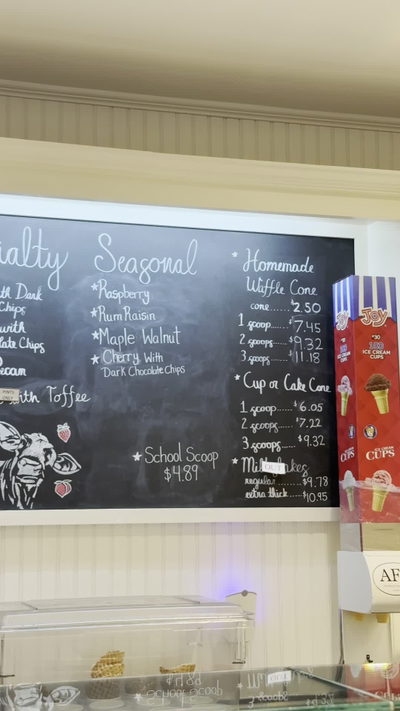 ialty
th Dark
Chips
with
late Chips
ecam
with Toffee
Seasonal
*Raspberry
*Rum Raisin
*Maple Walnut
*Cherry With
Dark Chocolate Chips
*School Scoop
$4.89
* Homemade
Waffle Cone
cone......$2.50
1 scoop....$7.45
2 scoops...$9.32
3 scoops...$11.18
*Cup or Cake Cone
1 scoop......$6.05
2 scoops.....$7.22
3 scoops.....$9.32
* Milkshakes
OUT
regular.......$9.78
extra thick....$10.95
JOY
JOY
#30
ICE CREAM
CUPS
CUPS
CUPS
AF